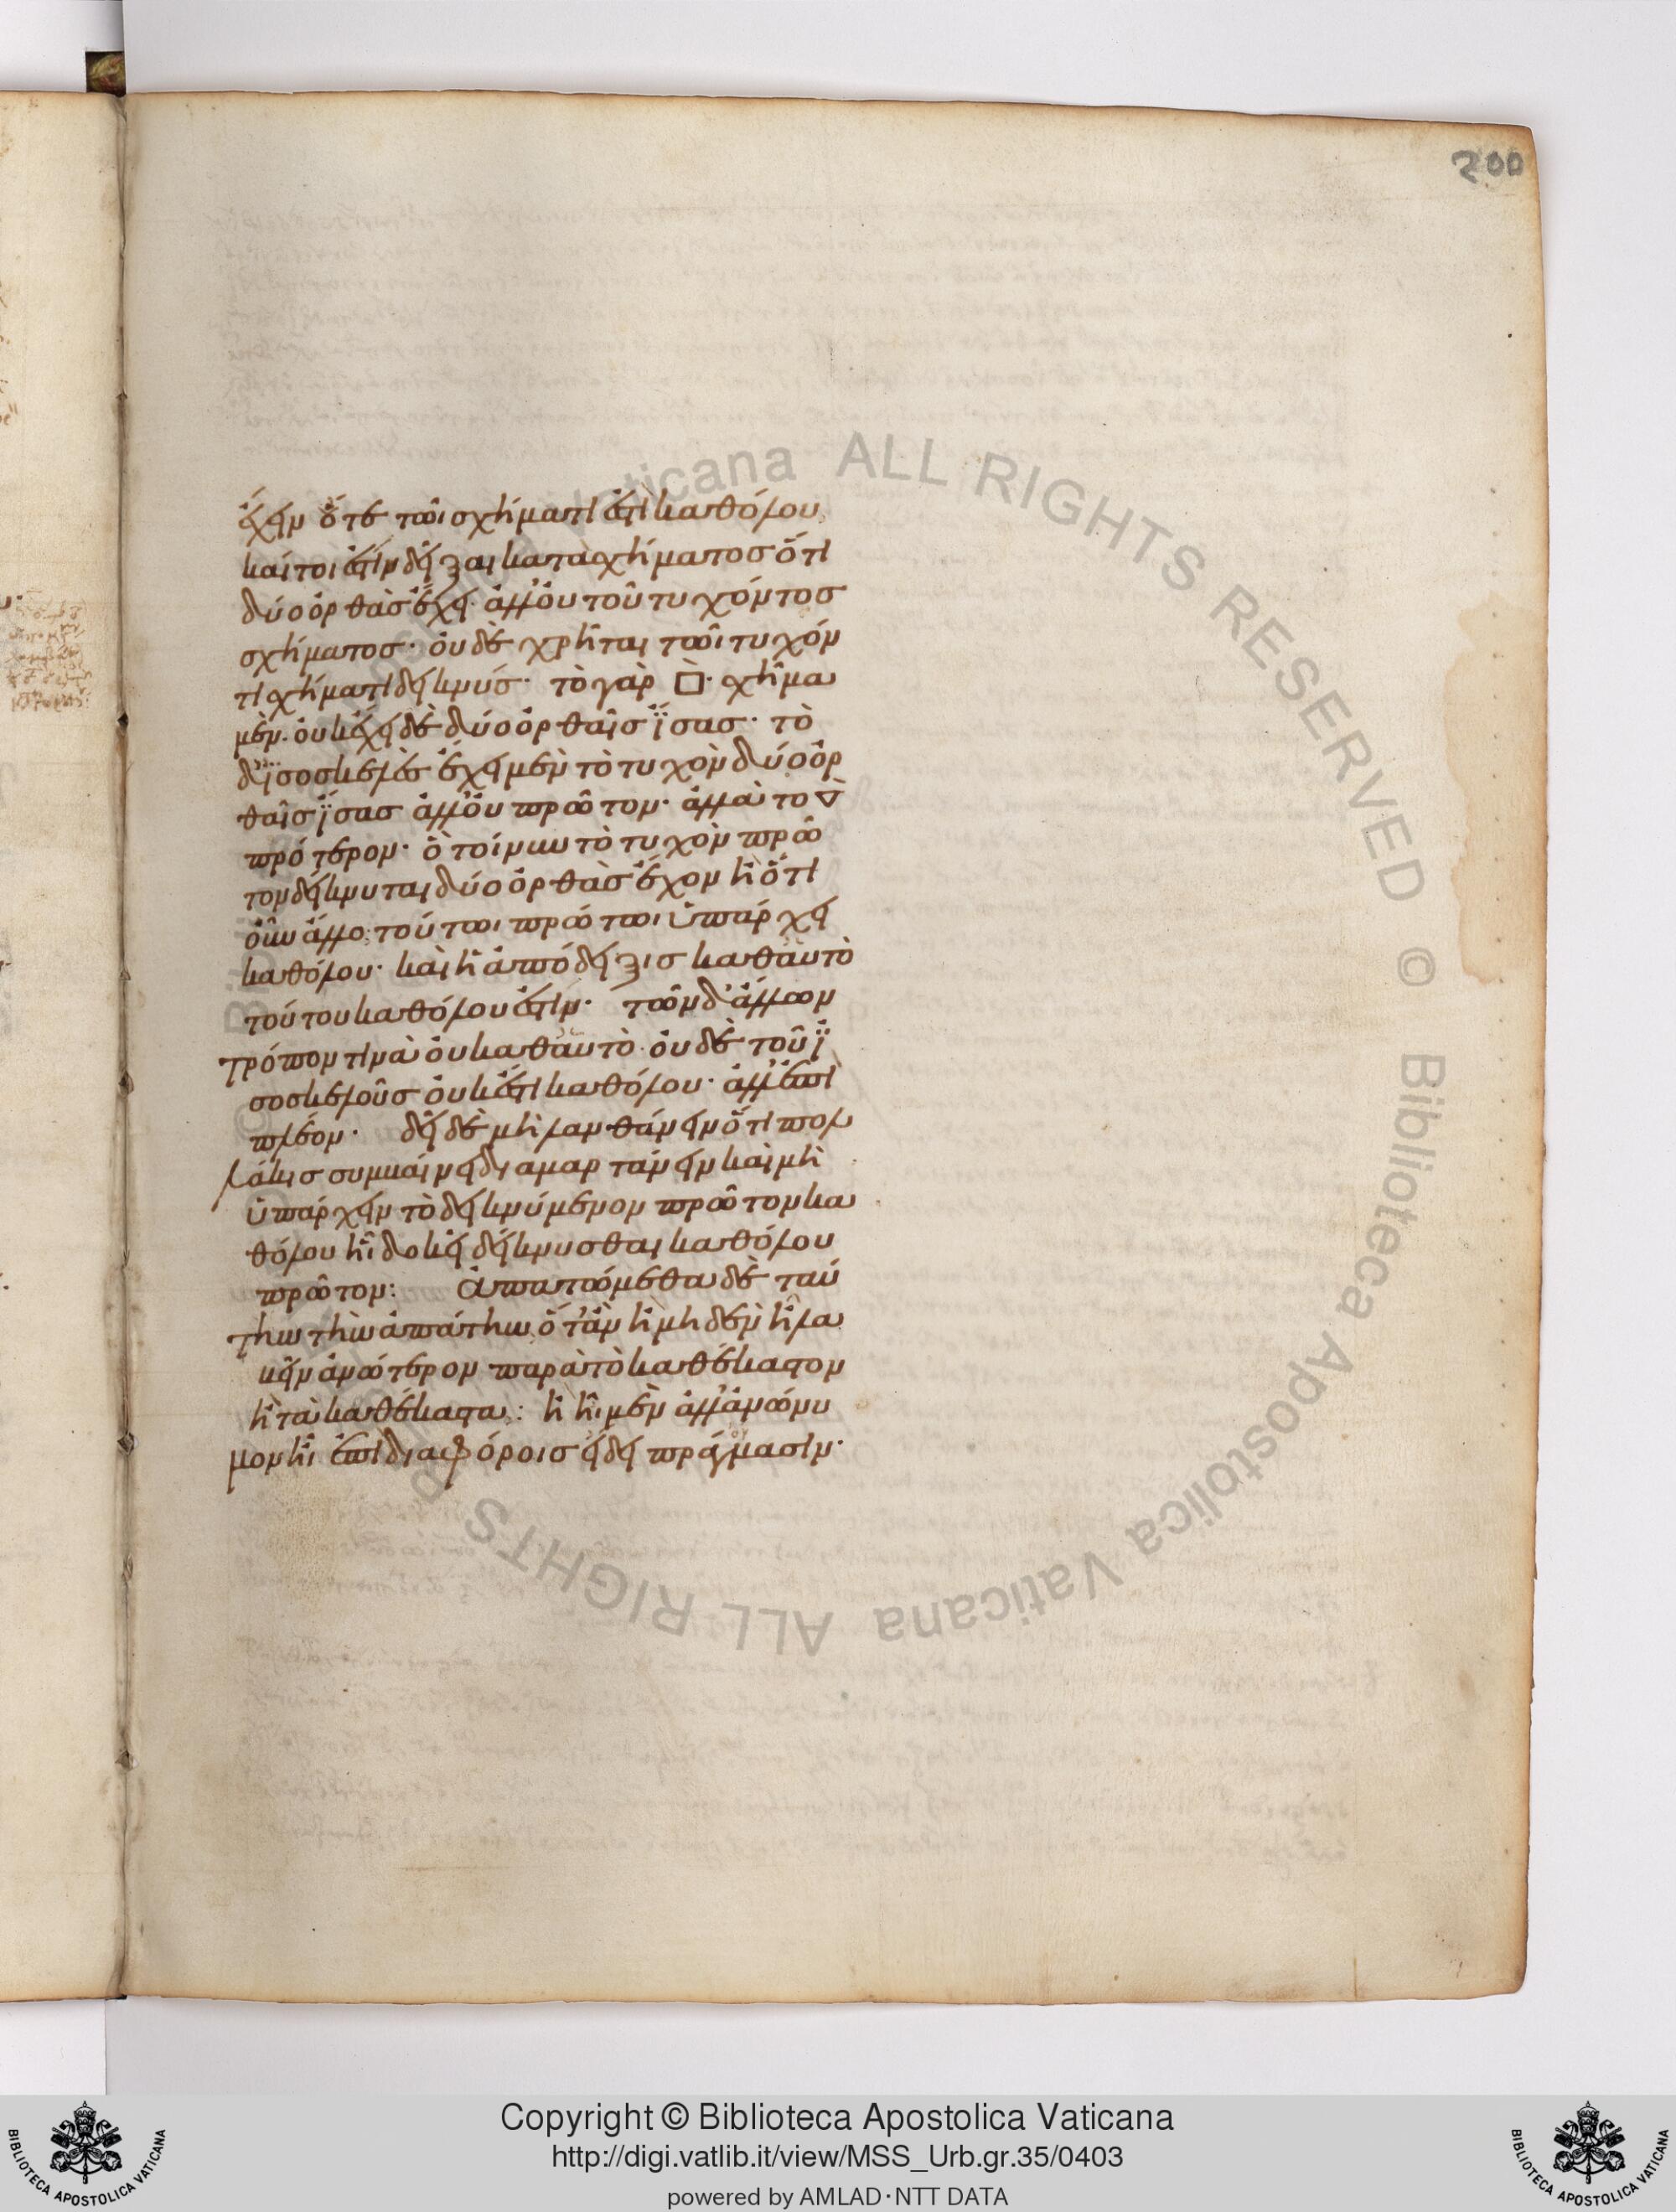 200
ἔχειν οὔτε τῶι σχήματί ἐστι καθόλου
καίτοι ἔστιν δεῖξαι κατὰ σχήματος ὅτι
δύο ὀρθὰς ἔχει· ἀλλ' οὐ τοῦ τυχόντος
σχήματος· οὐδὲ χρῆται τῶι τυχόν
τι σχήματι δεικνύς· τὸ γὰρ □· σχῆμα
μέν· οὐκ ἔχει δὲ δύο ὀρθαῖς ἴσας· τὸ
δ' ἰσοσκελὲς ἔχει μὲν τὸ τυχὸν δύο ὀρ
θαῖς ἴσας ἀλλ' οὐ πρῶτον· ἀλλὰ τὸ ▽
πρότερον· ὃ τοίνυν τὸ τυχὸν πρῶ
τον δείκνυται δύο ὀρθὰς ἔχον ἢ ὅτι
οὖν ἄλλο· τούτωι πρώτωι ὑπάρχει
καθόλου· καὶ ἡ ἀπόδειξις καθ' αὑτὸ
τούτου καθόλου ἐστίν· τῶν δ' ἄλλων
τρόπον τινὰ οὐ καθ' αὑτὸ· οὐδὲ τοῦ ἰ
σοσκελοῦς οὐκ ἔστι καθόλου· ἀλλ' ἐπὶ
πλέον· δεῖ δὲ μὴ λανθάνειν ὅτι πολ
λάκις συμβαίνει διαμαρτάνειν καὶ μὴ
ὑπάρχειν τὸ δεικνύμενον πρῶτον κα
θόλου ἧι δοκεῖ δείκνυσθαι καθόλου
πρῶτον: ἀπατώμεθα δὲ ταύ
την τὴν ἀπάτην ὅτ' ἂν ἢ μηδὲν ἦι λα
βεῖν ἀνώτερον παρὰ τὸ καθέκαστον
ἢ τὰ καθέκαστα: ἢ ἦι μὲν ἀλλ' ἀνώνυ
μον ἦι ἐπὶ διαφόροις εἴδει πράγμασιν·
Biblioteca Apostolica Vaticana ALL RIGHTS RESERVED ©
Copyright © Biblioteca Apostolica Vaticana
http://digi.vatlib.it/view/MSS_Urb.gr.35/0403
powered by AMLAD·NTT DATA
BIBLIOTECA APOSTOLICA VATICANA
BIBLIOTECA APOSTOLICA VATICANA